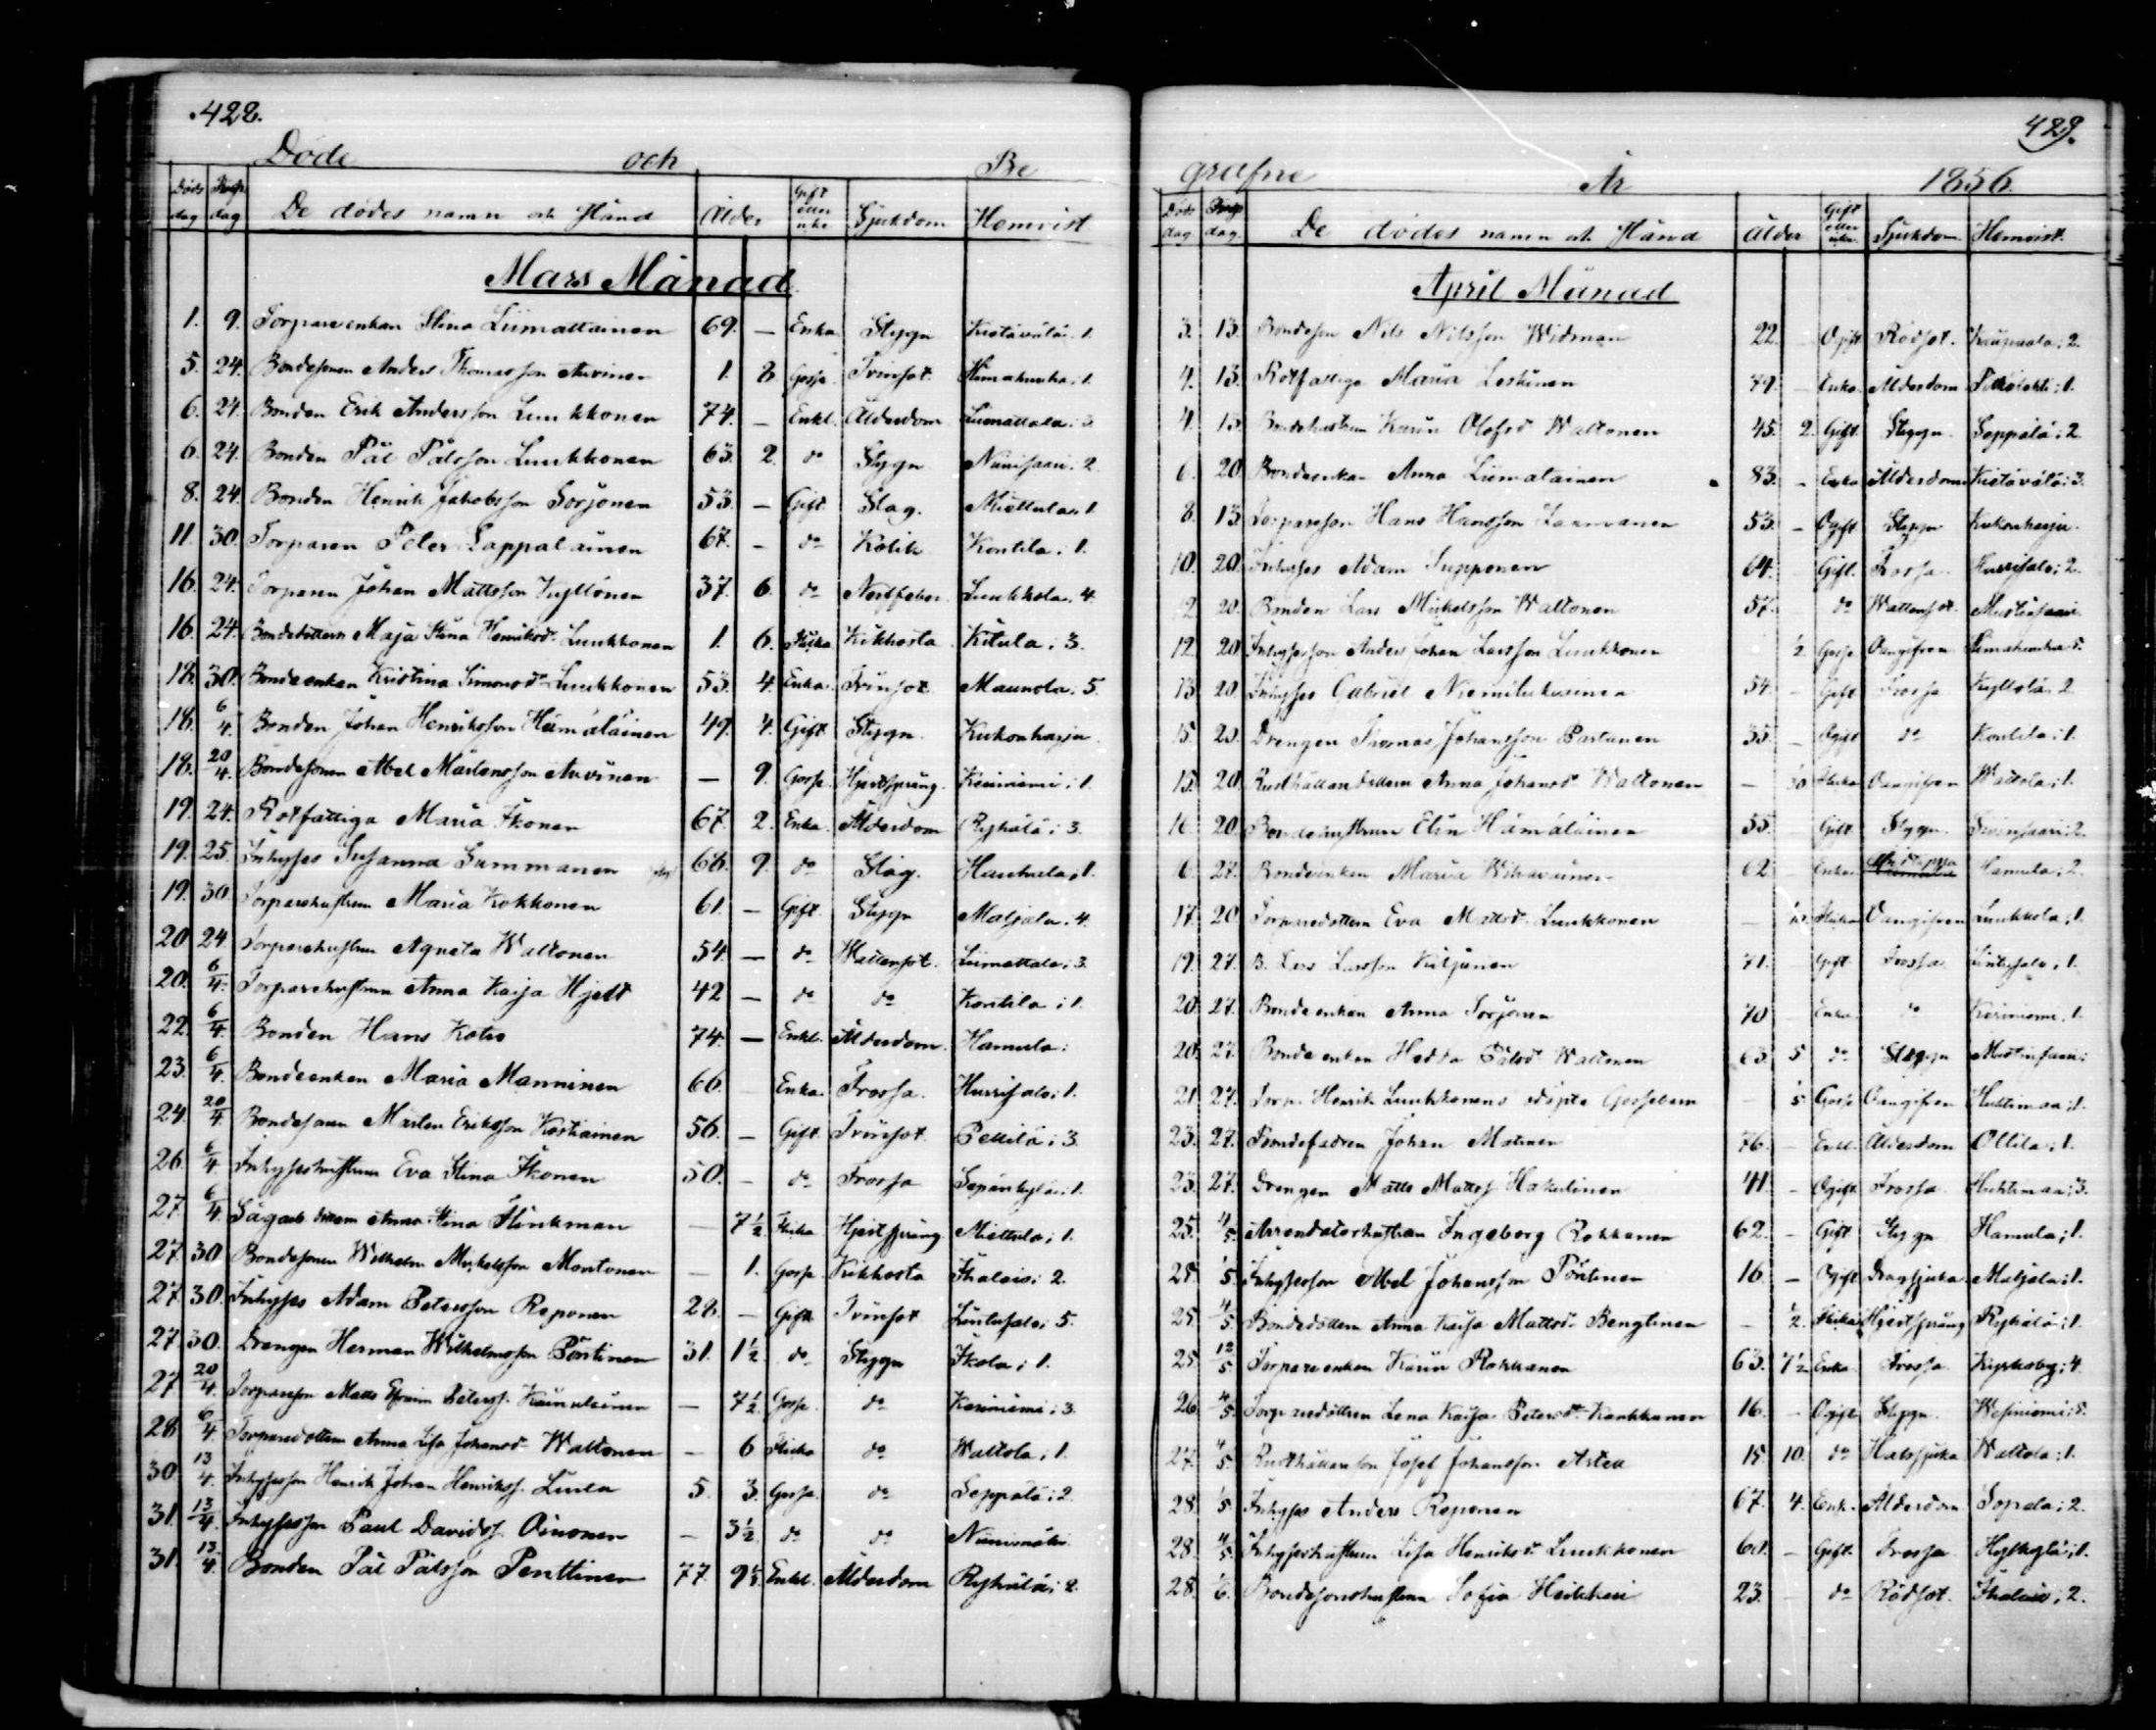 428.
Döde och Be
Döds dag Begr. dag De dödes namn och stånd Ålder Gift eller icke Sjukdom Hemvist
Mars Månad
1. 9. Torpareenkan Stina Liimattainen 69. — Enka Stygn Kistävälä. 1.
5. 24. Bondesonen Anders Thomasson Arvinen 1. 8. Gosse Tvinsot 1.
6. 24. Bonden Erik Andersson Luukkonen 74. — Enkl. Ålderdom Liimattala: 3.
6. 24. Bonden Pål Pålsson Luukkonen 63 2. do Stygn Niinisaari. 2.
8. 24. Bonden Henrik Jakobsson Sorjonen 53. — Gift Slag. Miettula. 1.
11. 30. Torparen Peter Lappalainen 67. — do Kolik Kontila. 1.
16. 24. Torparen Johan Mattsson Kyllönen 37. 6. do Nerffeber Luukkola. 4.
16. 24. Bondedottern Maja Stina Henriksd. Luukkonen 1. 6. Flicka Kikhosta Kitula; 3.
18. 30. Bondeenkan Kristina Simonsd. Luukkonen 53. 4. Enka Tvinsot Maunola. 5.
18. 6/4. Bonden Johan Henriksson Hämäläinen 49. 4. Gift Stygn. Kukonharju
18. 20/4. Bondesonen Abel Mårtensson Arvinen — 9. Gosse Hjertsprång. Kiiniemi; 1.
19. 24. Rotfattiga Maria Ikonen 67. 2. Enka Ålderdom Ryhälä; 3.
19. 25. Inhyses Susanna Summanen 68. 9. do Slag. 1.
19. 30 Torparehustrun Maria Kokkonen 61. — Gift. Stygn Maljala. 4.
20 24 Torparehustrun Agneta Waltonen 54. — do Wattensot. Liimattala; 3.
20. 6/4. Torparehustrun Anna Kaija Hjelt 42 — do do Kontila; 1.
22. 6/4. Bonden Hans Kotro 74. — Enkl. Ålderdom Hamula:
23. 6/4. Bondeenkan Maria Manninen 66. Enka. Frossa. Hurrisalo; 1.
24. 20/4. Bondesonen Mårten Eriksson Kostiainen 56. — Gift. Tvinsot Pellilä; 3.
26. 6/4. Inhyseshustrun Eva Stina Ikonen 50. — do Frossa 1.
27. 6/4. dottern Anna Stina Flinkman — 7½ Flicka Hjertsprång Miettula; 1.
27. 30 Bondesonen Wilhelm Mickelsson Montonen — 1. Gosse Kikhosta Ihalais; 2.
27. 30. Inhyses Adam Petersson Reponen 28. — Gift Tvinsot Lintusalo; 5.
27. 30. Drengen Herman Wilhelmsson Pöntinen 31. 1½ do Stygn Ikola; 1.
27 20/4. Torparesson Matts Efraim Peterss. — 7½. Gosse do 3.
28 6/4. Torparedottern Anna Lisa Johansd. Waltonen — 6 Flicka do Waltola; 1.
30. 13/4. Inhysesson Henrik Johan Henrikss. 5. 3. Gosse. do Seppälä; 2.
31. 13/4. Inhysesson Paul Davidss. Oinonen — 3½. do do Niinimäki
31. 13/4. Bonden Pål Pålsson Penttinen 77. Enkl. Ålderdom Ryhälä; 2.
429.
grafne År 1856.
Döds dag Begr. dag. De dödes namn och stånd Ålder Gift eller icke Sjukdom Hemvist.
April Månad
3. 13. Bondeson Nils Nilsson Widman 22. Ogift Rödsot. 2.
4. 13. Rotfattiga Maria Leskinen 79. — Enka Ålderdom 1.
4. 13. Bondehustrun Karin Olofsd Waltonen 45. 2. Gift. Stygn. Seppälä; 2
6. 20 Bondeenkan Anna Liimatainen 83. — Enka Ålderdom Kistävälä; 3.
8. 13 Torparesson Hans Hansson 53. — Ogift Stygn Kukonharju.
10. 20. Inhyses Adam Supponen 64. Gift. Frossa. Hurrisalo; 2.
12. 20. Bonden Lars Mickelsson Waltonen 57. do Wattensot. Mustinsaari
12. 20 Inhysesson Anders Johan Larsson Luukkonen ½ Gosse Oangifven
13 20. Inhyses Gabriel 54. — Gift Frossa Kyllölä. 2
15. 20. Drengen Thomas Johansson Partanen 35. — Ogift do Kontila; 1.
15. 20. Rusthållaredottern Anna Johansd Waltonen — Flicka Oangifven Waltola; 1.
16. 20. Bondehustrun Elin Hämäläinen 55. Gift Stygn. 2.
6. 27. Bondeenkan Maria 62 Enka Hamula; 2.
17. 20. Torparedottern Eva Mattsd. Luukkonen — Flicka Oangifven Luukkola; 1.
19. 27. B. Lars Larsson Kiljunen 71. Gift Frossa Lintusalo; 1.
20. 27. Bondeenkan Anna Sorjonen 70 Enka do 1.
20. 27. Bondeenkan Hedda Pålsd Waltonen 63. 5 do Stygn Mustinsaari
21. 27. Torp. Henrik Luukkonens odöpte Gossebarn Gosse Oangifven Huttimaa; 1.
23. 27. Bondefadren Johan Matinen 76. — Enkl. Ålderdom Ollila; 1.
23. 27. Drengen Matts Mattss Hakulinen 41. — Ogift Frossa 3.
25. 4/5. Arrendatorhustrun Ingeborg Rokkanen 62. — Gift Stygn Hamula; 1.
25. 5. Inhysesson Abel Johansson Pöntinen 16. — Ogift Dragsjuka Maljala; 1.
25. 4/5. Bondedottern Anna Kaisa Mattsd. Bengtinen — ½. Flicka Hjertsprång Ryhälä; 1.
25. 12/5. Torpareenkan Karin Rokkanen 63. 7½ Enka Frossa Kyrkoby; 4
26. 4/5. Torparedottren Lena Kaisa Petersd. Kankkunen 16. — Ogift Stygn. 5.
27. 4/5. Rusthållaresson Josef Johansson Astell 15 10. do Halssjuka Waltola; 1.
28. 5. Inhyses Anders Reponen 67. 4. Enk. Ålderdom 2.
28. 4/5. Inhyseshustrun Lisa Henriksd Luukkonen 60. — Gift. Frossa 1.
28. 6. Bondesonshustrun Sofia Heikkeri 23. — do Rödsot. Ihalais; 2.